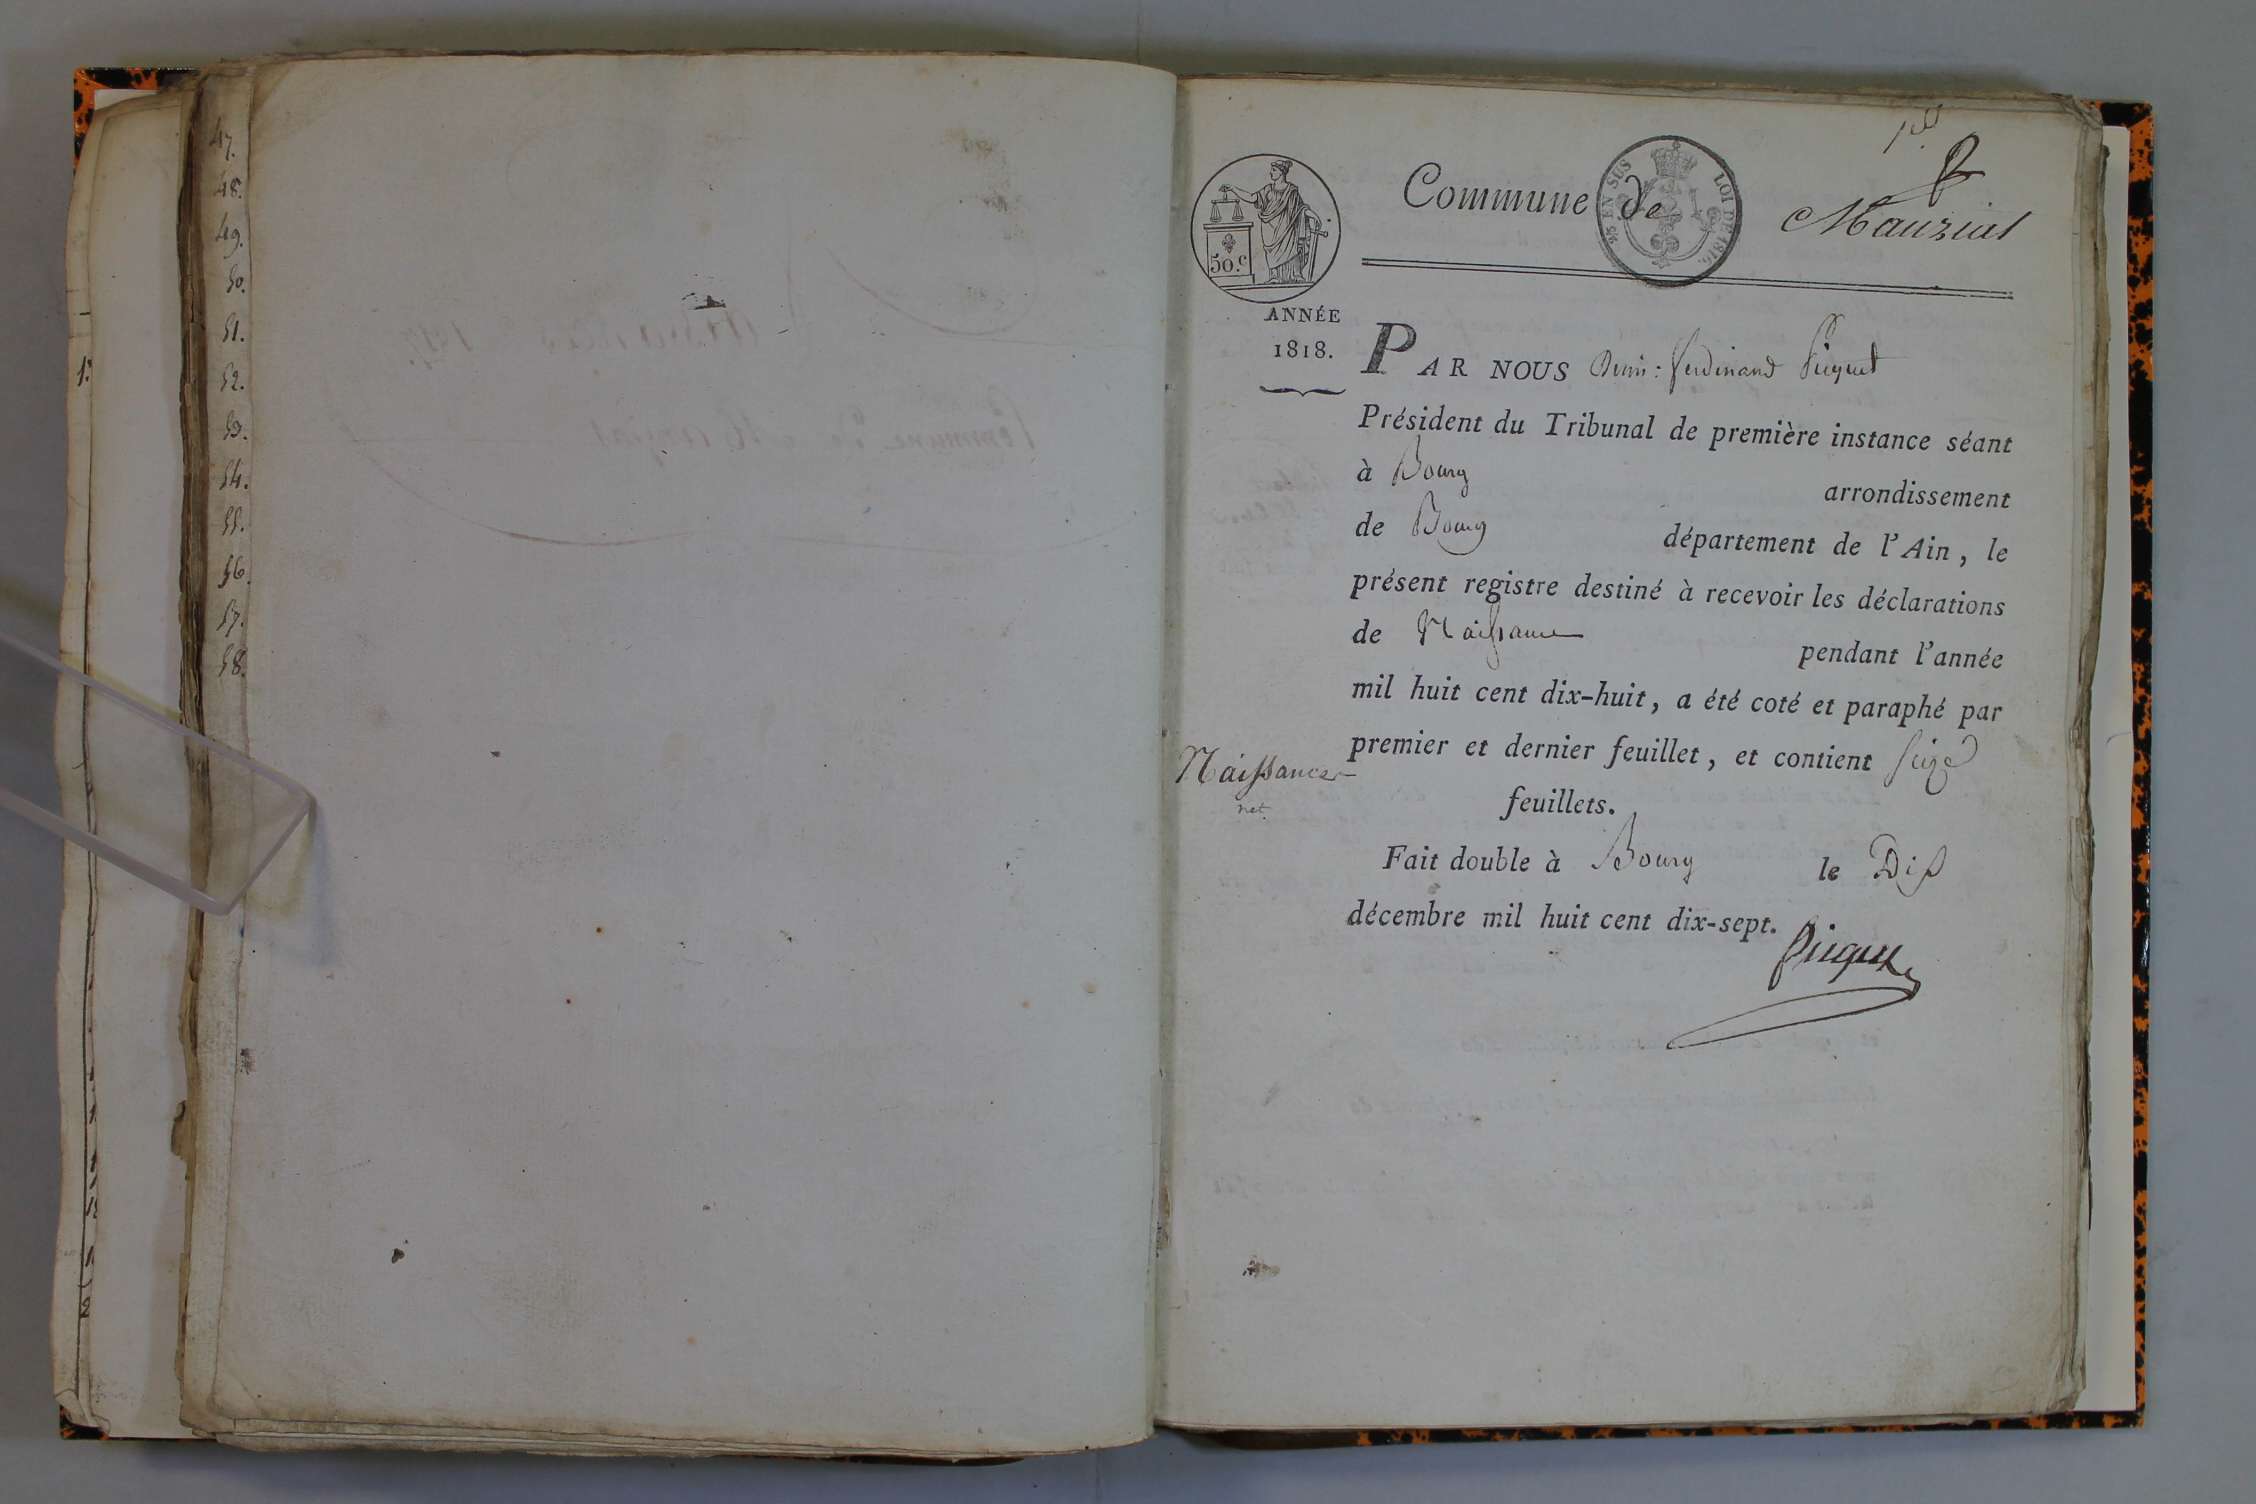 47.
48.
49.
50.
51.
52.
53.
54.
55.
56.
57.
58.
1.
50.c
25 EN SUS LOI DE 1816.
Commune de Mauziat
ANNÉE
1818.
PAR NOUS Ferdinand Piquet
Président du Tribunal de première instance séant
à Bourg arrondissement
de Bourg département de l'Ain, le
présent registre destiné à recevoir les déclarations
de Naissance pendant l'année
mil huit cent dix-huit, a été coté et paraphé par
premier et dernier feuillet, et contient seize
feuillets.
Naissances
net.
Fait double à Bourg le Dix
décembre mil huit cent dix-sept.
Piquet